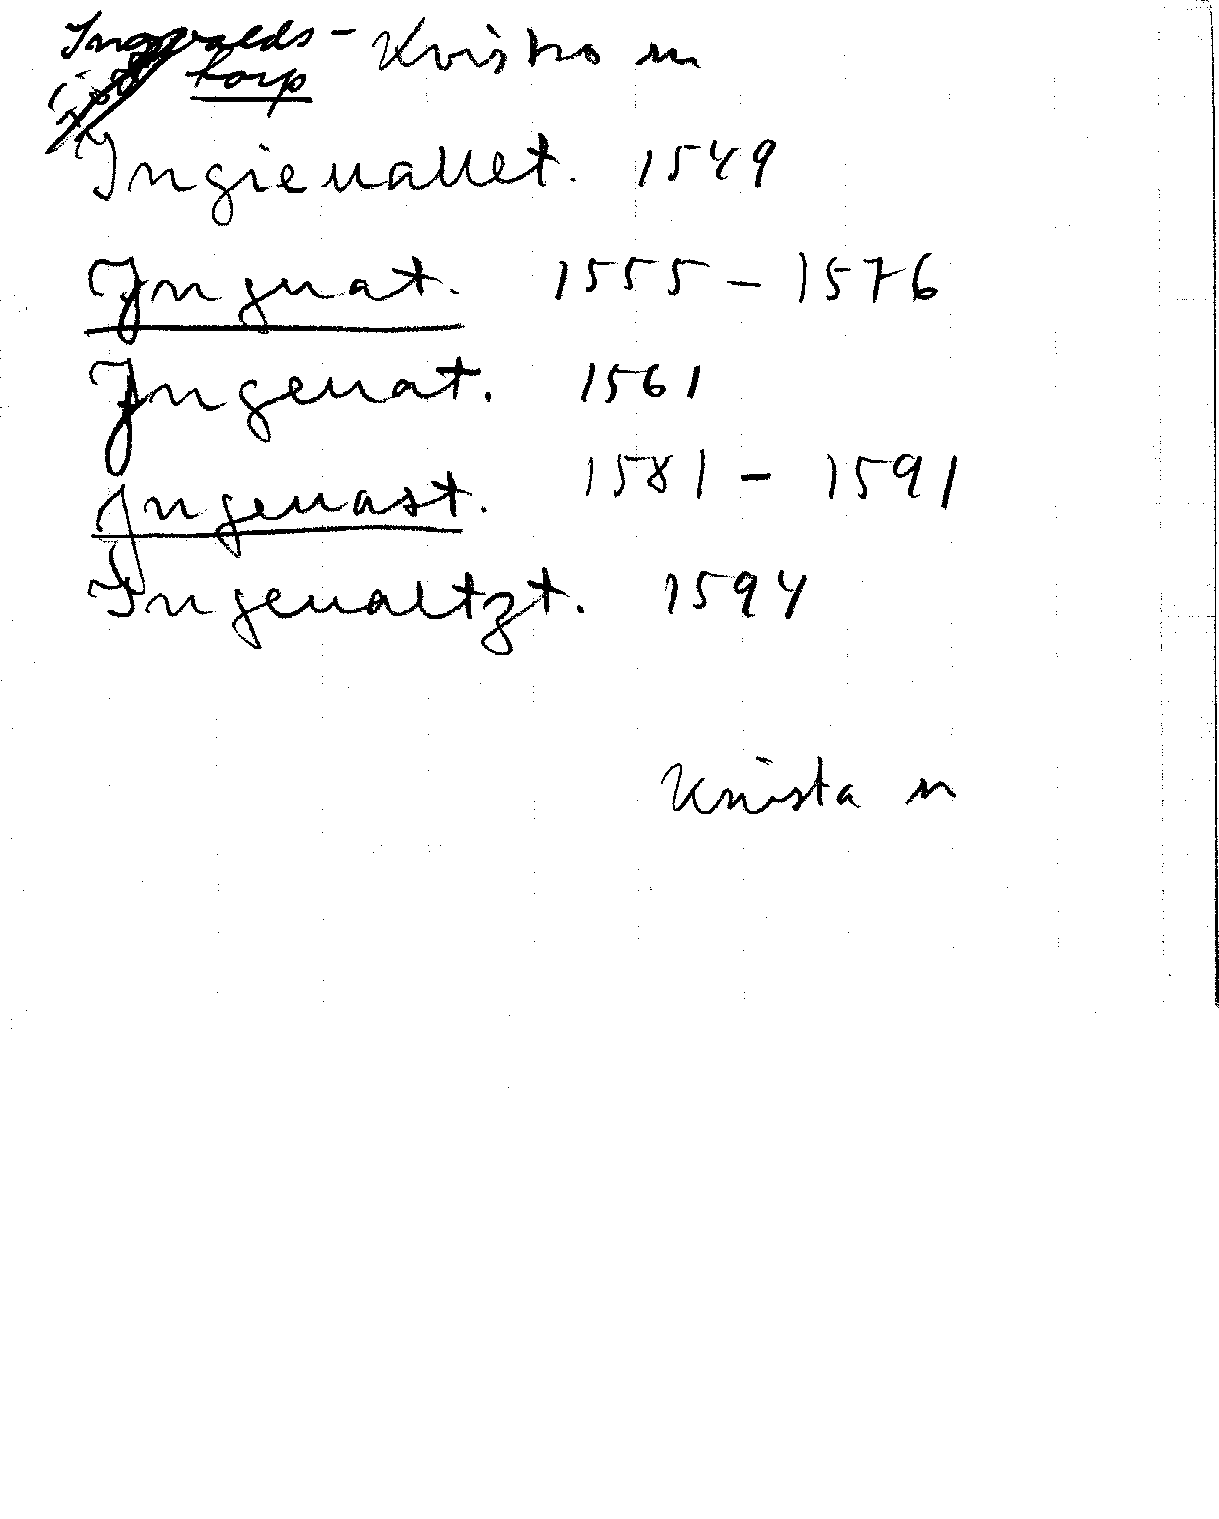 Ingvalds- Kvistro m
torp
Ingieuallet. 1549
Jnguat. 1555 - 1576
Jngeuat. 1561
Jngeuast. 1581 - 1591
Ingeualtzt. 1594
Knista m